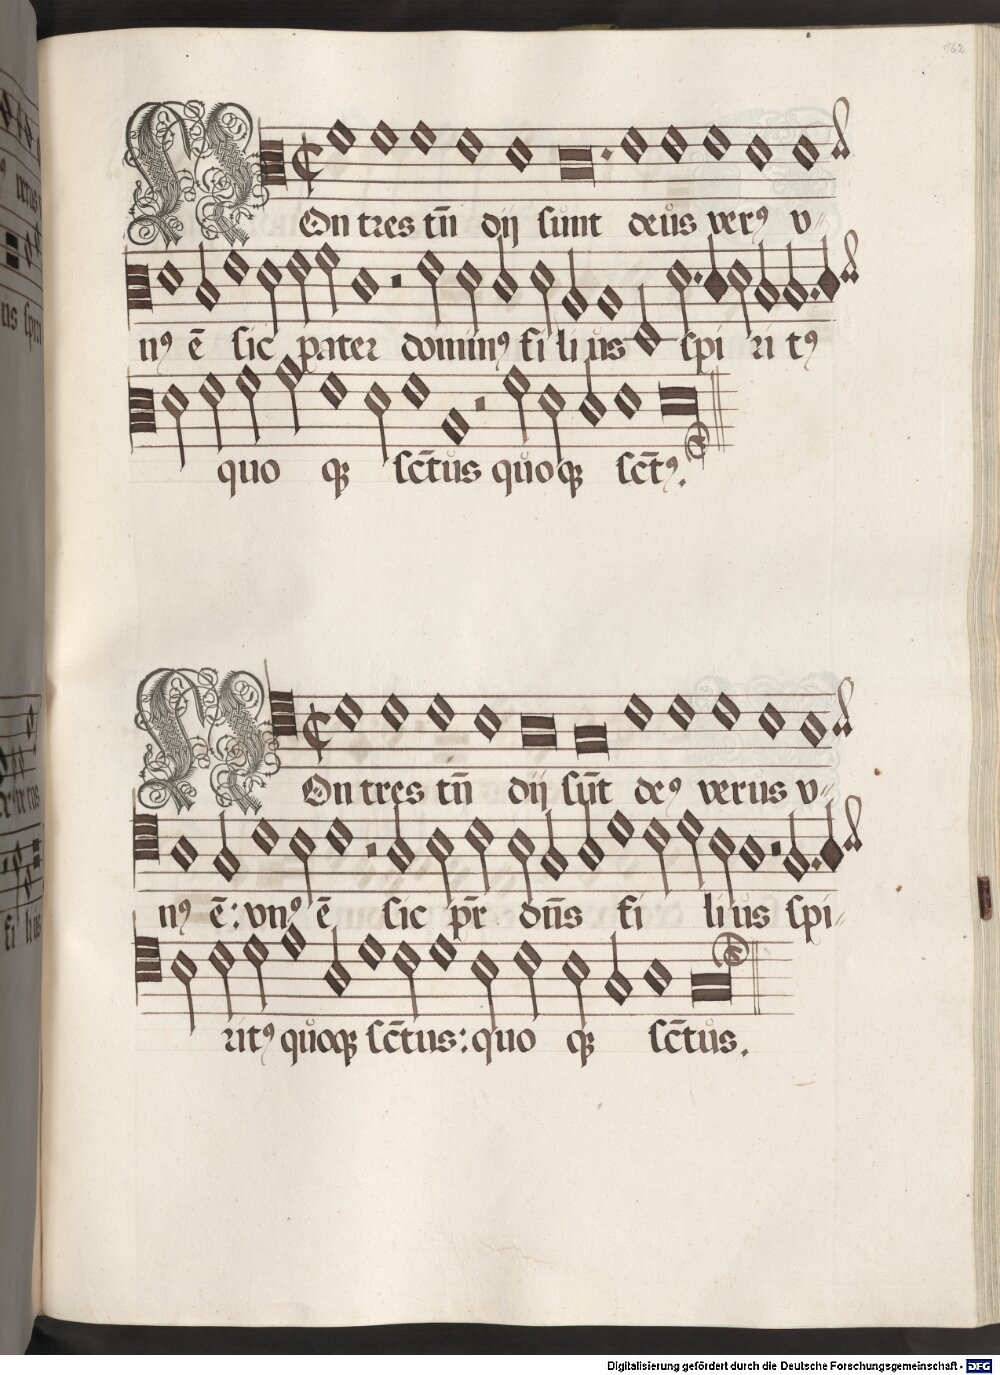 162
NOn tres tn̄ dij sunt deůs verꝰ v⸗
nꝰ ē sic pater dominꝰ fi li ůs spi ri tꝰ
quo qꝫ sc̄tůs quůoqꝫ sc̄tꝰ.
NOn tres tn̄ dij sūt deꝰ verus v⸗
nꝰ ē: vnꝰ ē sic pr̄ dn̄s fi li us spi⸗
ritꝰ quůoqꝫ sc̄tus: quo qꝫ sc̄tůs.
Digitalisierung gefördert durch die Deutsche Forschungsgemeinschaft - DFG